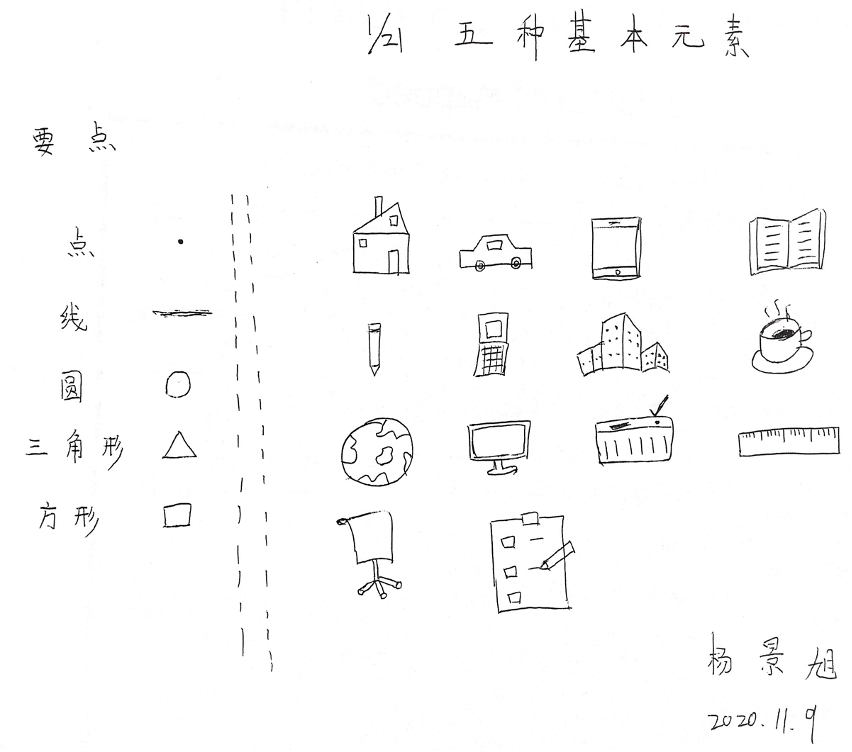 1/21 五种基本元素
要点
点
线
圆
三角形
方形
杨景旭
2020.11.9